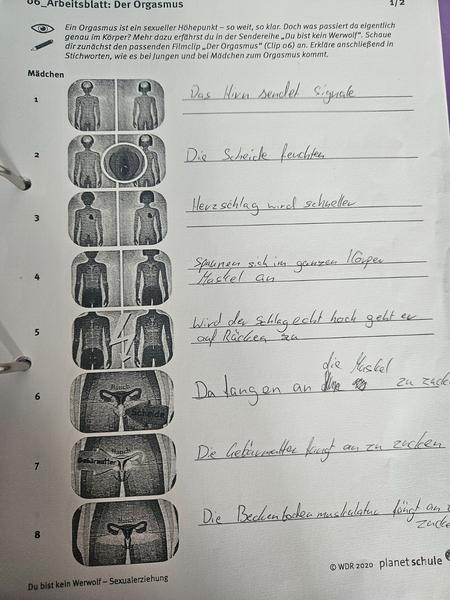 06_Arbeitsblatt: Der Orgasmus
1/2
Ein Orgasmus ist ein sexueller Höhepunkt – so weit, so klar. Doch was passiert da eigentlich
genau im Körper? Mehr dazu erfährst du in der Sendereihe „Du bist kein Werwolf“. Schaue
dir zunächst den passenden Filmclip „Der Orgasmus“ (Clip 06) an. Erkläre anschließend in
Stichworten, wie es bei Jungen und bei Mädchen zum Orgasmus kommt.
Mädchen
1
Das Hirn sendet Signale
2
Die Scheide feuchten
3
Herzschlag wird schneller
4
Spannen sich im ganzen Körper
Muskel an
5
Wird der Schlag echt hoch geht er
auf Rücken zu
die Muskel
6
Da fangen an zu zuck
Bauch
Scheide
7
Die Gebärmutter fängt an zu zucken
Bauch
Gebärmutter
8
Die Beckenbodenmuskulatur fängt an
zucke
© WDR 2020 planet schule
Du bist kein Werwolf – Sexualerziehung